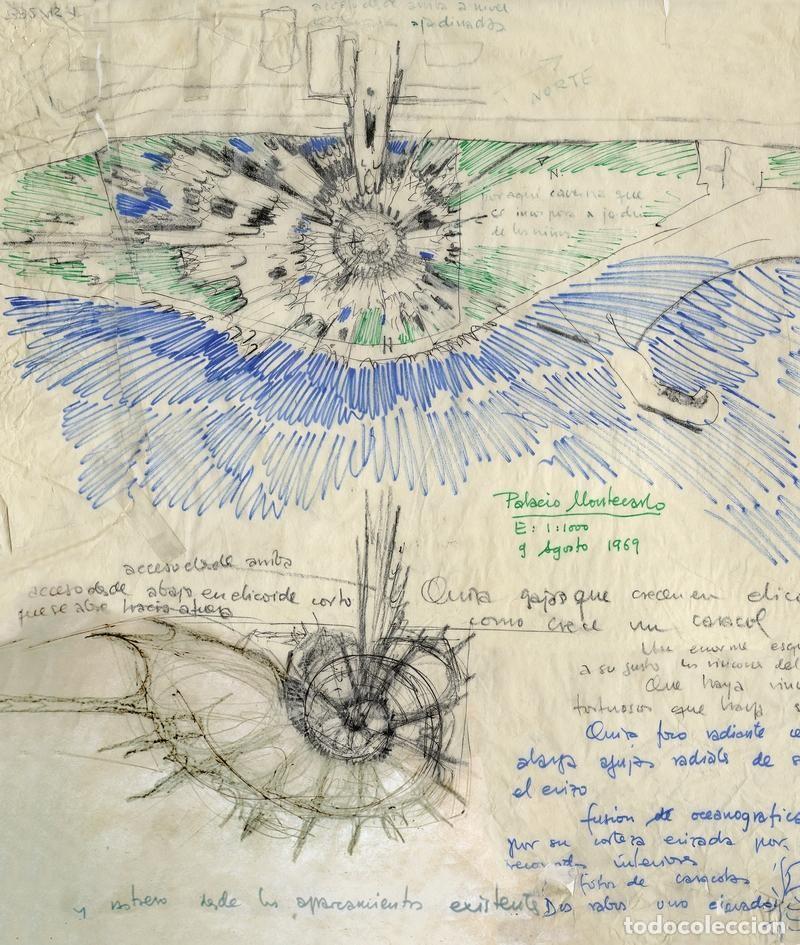 acceso desde arriba a nivel
ajardinadas
NORTE
N.
por aquí caverna que
se incorpora a jardín
de los niños
H
Palacio Montecarlo
E: 1:1000
9 Agosto 1969
acceso desde arriba
acceso desde abajo en elicoide corto
que se abre hacia afuera
Quizá gajos que crecen en elico
como crece un caracol
Un enorme esq
a su gusto los rincones del
Que haya rinc
tortuosos que haya s
Quizá foro radiante ce
alarga agujas radiales de s
el erizo
fusión de oceanografico
por su corteza erizada por
recorridos interiores
fotos de caracolas
y rastrero desde los aparcamientos existente
Dos rabos uno elevado
todocoleccion